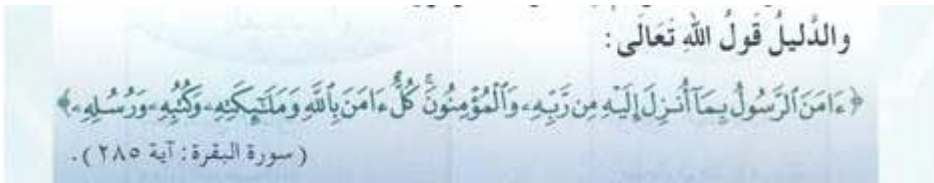 والدَّليلُ قَولُ اللهِ تَعَالَى:
﴿ءَامَنَ ٱلرَّسُولُ بِمَآ أُنزِلَ إِلَيْهِ مِن رَّبِّهِۦ وَٱلْمُؤْمِنُونَۚ كُلٌّ ءَامَنَ بِٱللَّهِ وَمَلَـٰٓئِكَتِهِۦ وَكُتُبِهِۦ وَرُسُلِهِۦ﴾
(سورة البقرة: آية ٢٨٥).